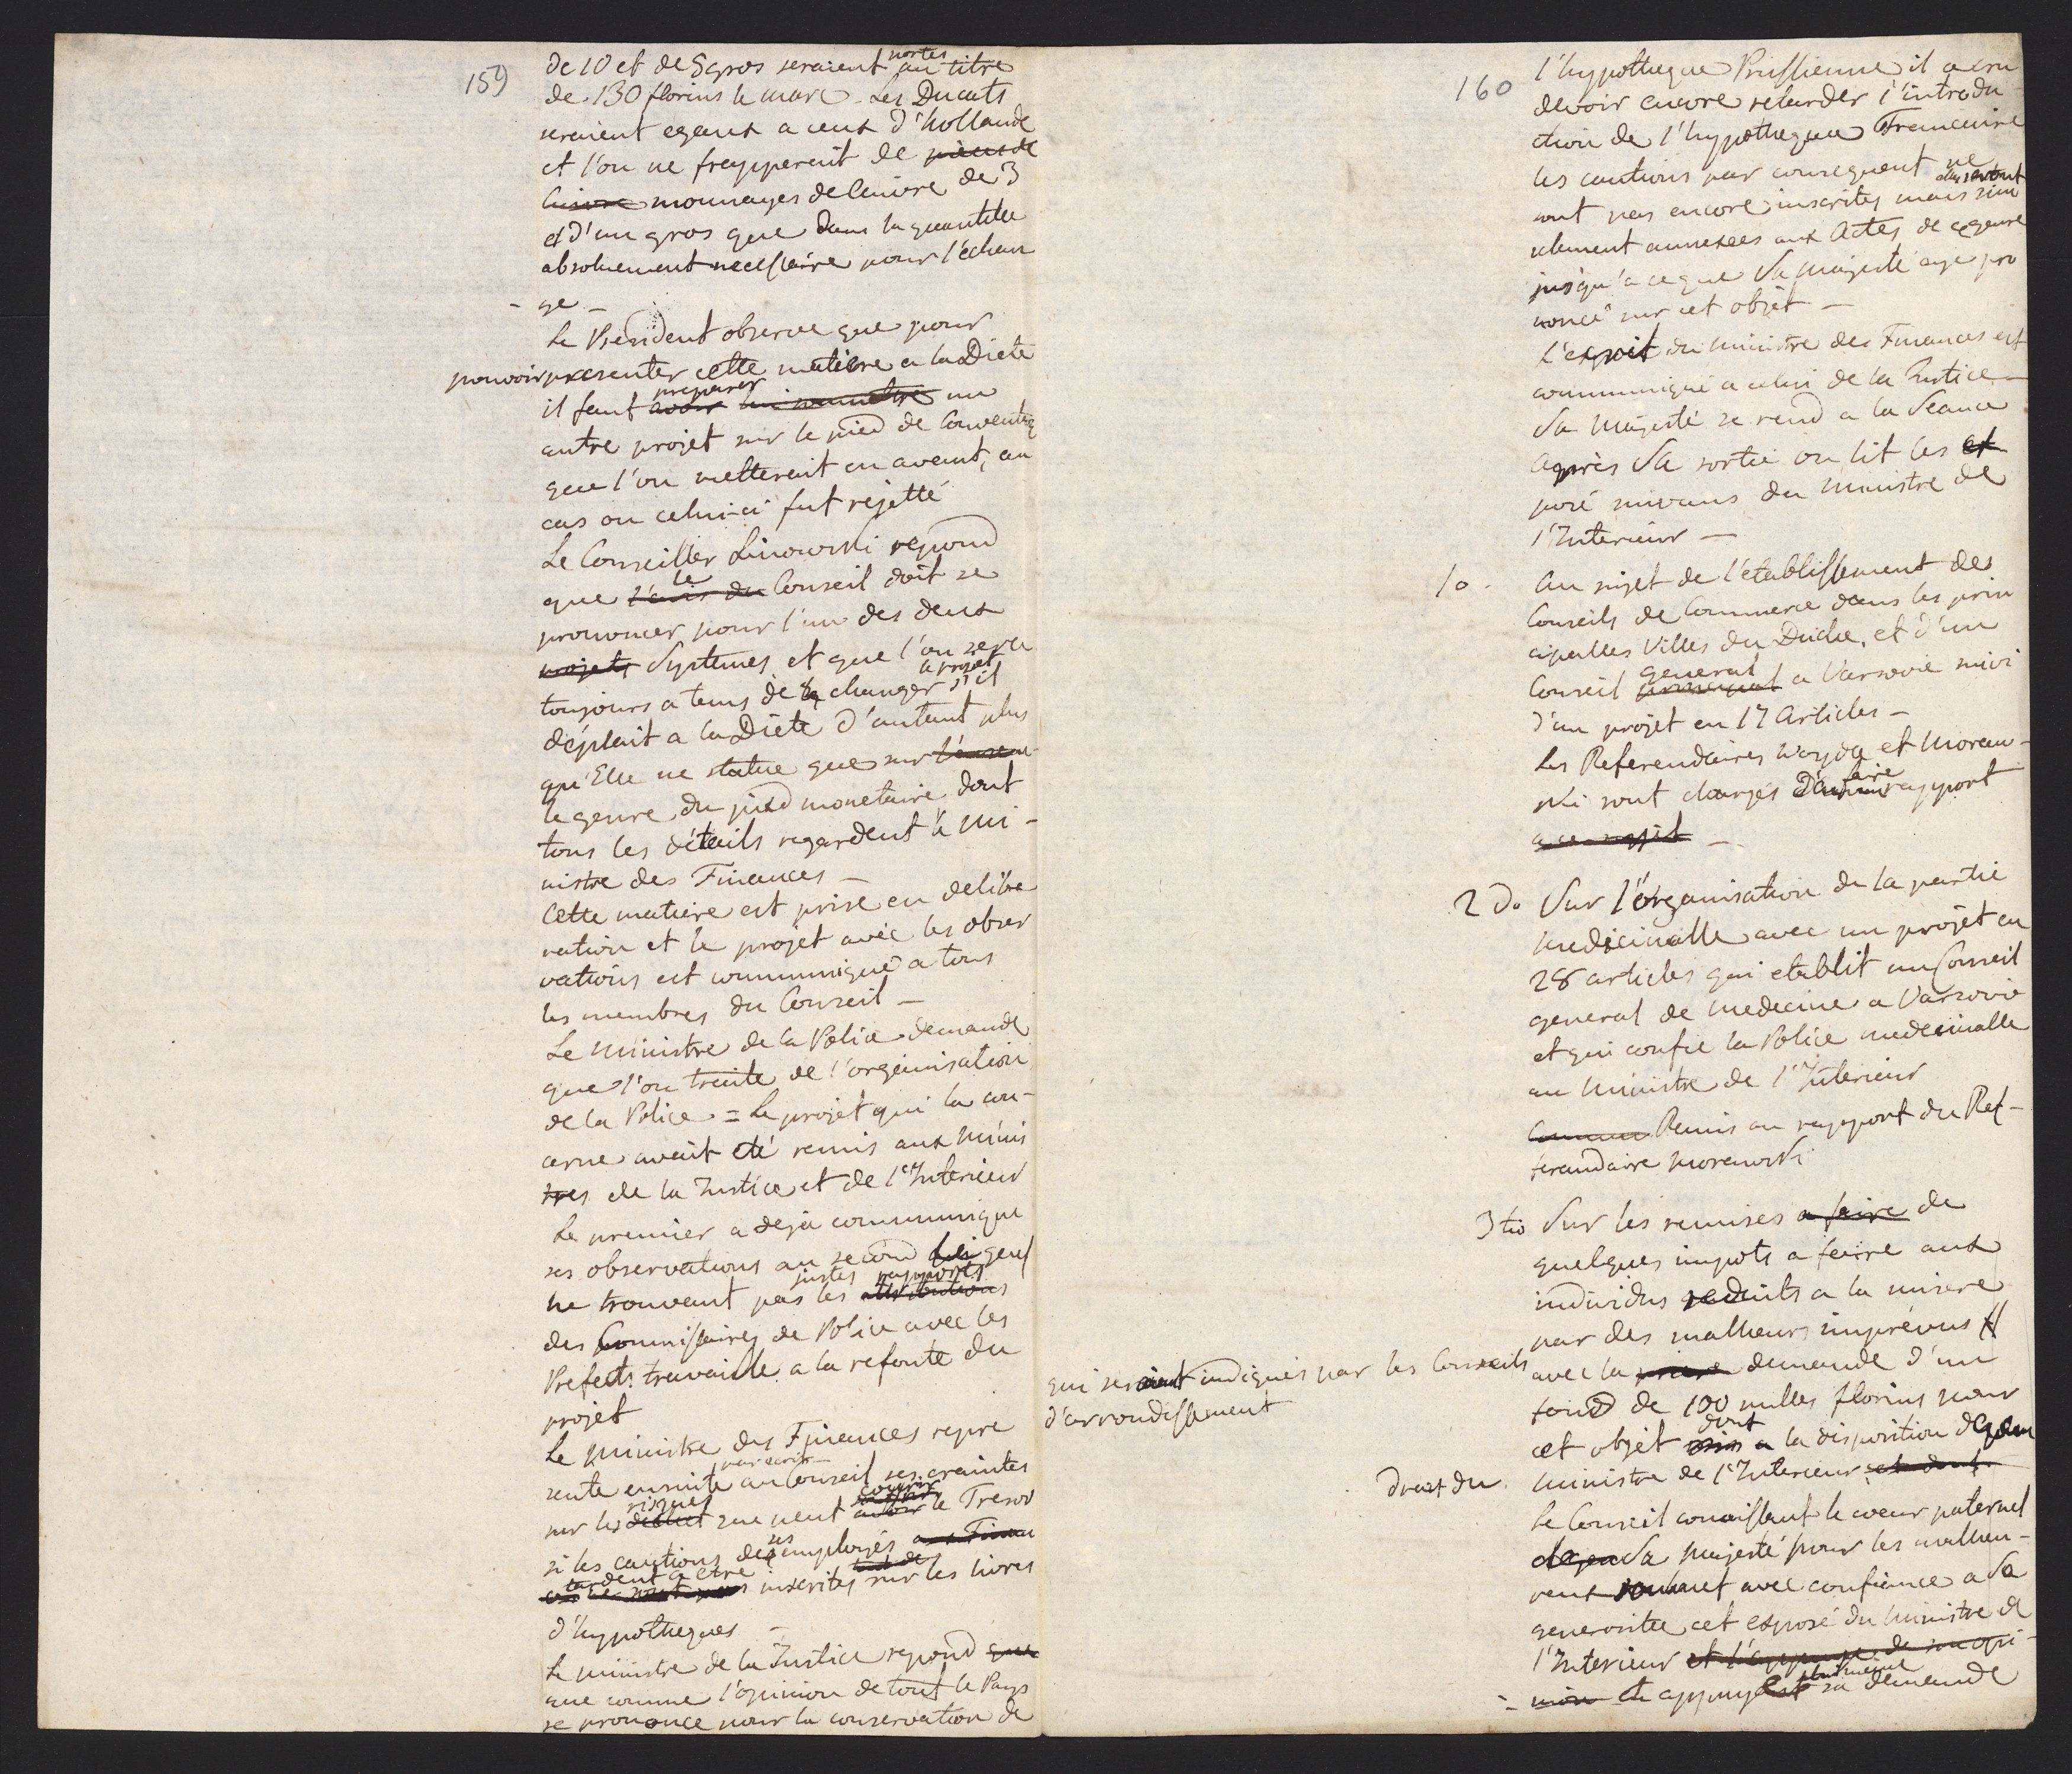 159
de 10 et de 5 gros seraient portés au titre
de 130 florins le marc. Les Ducats
seraient egaux a ceux d'hollande
et l'on ne frapperait de pieces de
Cuivre monnayes de Cuivre de 3
et d'un gros que dans la quantitée
absoluement necessaire pour l'echan
- ge -
Le President observe que pour
pouvoir presenter cette matière a la Diete
il faut avoir preparer lui soumettre un
autre projet sur le pied de Convention
que l'on metterait en avant, au
cas ou celui-ci fut rejetté
Le Conseiller Linowski repond
que l'avis du le Conseil doit se
prononcer pour l'un des deux
projets Systemes et que l'on sera
toujours a tems de le changer le projet s'il
déplait a la Diéte d'autant plus
qu'Elle ne statue que sur l'ensem
le genre du pied monetaire dont
tous les détails regardent le Mi-
nistre des Finances -
Cette matiere est prise en delibe
ration et le projet avec les obser
vations est communiqué a tous
les membres du Conseil -
Le Ministre de la Police demande
que l'on traite de l'organisation
de la Police = Le projet qui la con-
cerne avait eté remis aux Minis
tres de la Justice et de l'Interieur
Le premier a deja communiqué
ses observations au second qui
ne trouvant pas les justes rapports attributions
des Commissaires de Police avec les
Prefects travaille a la refonte du
projet
Le Ministre des Finances repre
sente ensuite par ecrit au Conseil ses craintes
sur les risques que peut courir le Tresor
si les cautions de ses employés aux Finan
ces ne sont pas tardent a etre inscrites sur les livres
d'hypotheques -
Le Ministre de la Justice repond que
que comme l'opinion de tout le Pays
se prononce pour la conservation de
160
l'hypotheque Prussienne il a cru
devoir encore retarder l'introdu
ction de l'hypotheque Francaise
les cautions par consequent ne seront
sont pas encore inscrites mais sim
plement annexées aux Actes de ce genre
jusqu'a ce que Sa Majesté aye pro
noncé sur cet objet -
L'exposé du ministre des Finances est
communiqué a celui de la Justice -
Sa Majesté se rend a la Seance
Après Sa sortie on lit les ex
posé suivans du Ministre de
l'Interieur -
1o. Au sujet de l'etablissement des
Conseils de Commerce dans les prin
cipalles Villes du Duché, et d'un
Conseil general principal a Varsovie suivi
d'un projet en 17 Articles -
Les Referendaires Woyda et Moraw-
ski sont chargés d'en faire rapport
a ce sujet -
2do Sur l'organisation de la partie
medicinalle avec un projet en
28 articles qui etablit un Conseil
general de medecine a Varsovie
et qui confie la Police medecinalle
au Ministre de l'Interieur
Remis au rapport du Ref-
ferendaire Morawski
3tio Sur les remises a faire de
quelques impots a faire aux
individus reduits a la misere
par des malheurs imprévus //
qui seraient indiqués par les Conseils
d'arrondissement
avec la demande d'un
fond de 100 milles florins pour
cet objet mis a dont la disposition
droit du Ministre de l'Interieur et dont
Le Conseil conaissant le coeur paternel
de Sa Majesté pour les malheu-
reux soumet avec confiance a Sa
generositée cet exposé du Ministre de
l'Interieur et l'appuye de son opi-
- nion et appuye sa demande